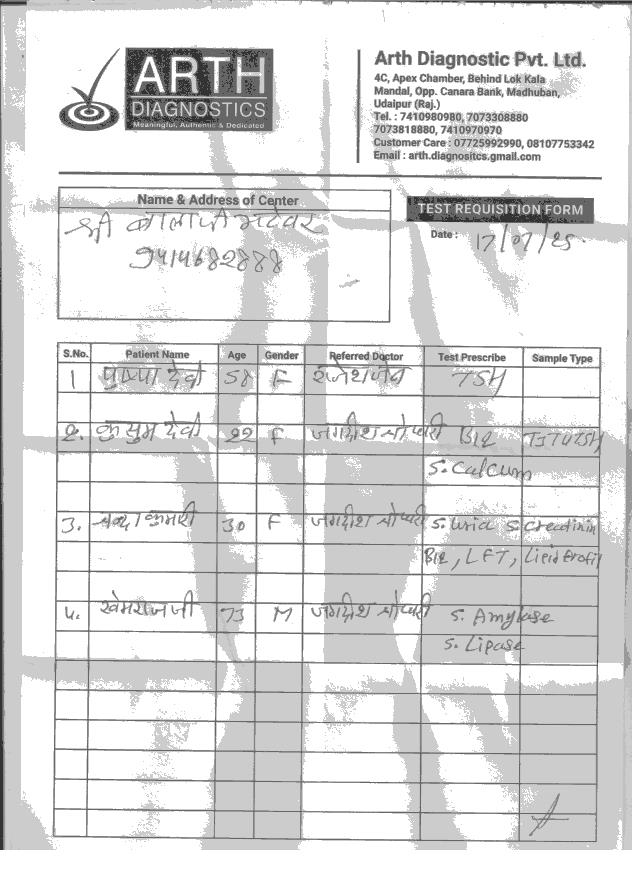 ARTH
DIAGNOSTICS
Meaningful, Authentic & Dedicated
Arth Diagnostic Pvt. Ltd.
4C, Apex Chamber, Behind Lok Kala
Mandal, Opp. Canara Bank, Madhuban,
Udaipur (Raj.)
Tel. : 7410980980, 7073308880
7073818880, 7410970970
Customer Care : 07725992990, 08107753342
Email : arth.diagnositcs.gmail.com
Name & Address of Center
श्री बालाजी भटेवर
9414682888
TEST REQUISITION FORM
Date : 17/07/25
S.No. Patient Name Age Gender Referred Doctor Test Prescribe Sample Type
1 पुष्पा देवी 58 F राजेश जैन TSH
2. कुसुम देवी 22 F जगदीश चौधरी B12 T3T4TSH
S. Calcum
3. कुमारी 30 F जगदीश चौधरी S. Uric S. Creatinin
B12, LFT, Lipid Profil
4. खेमराज जी 73 M जगदीश चौधरी S. Amylase
S. Lipase